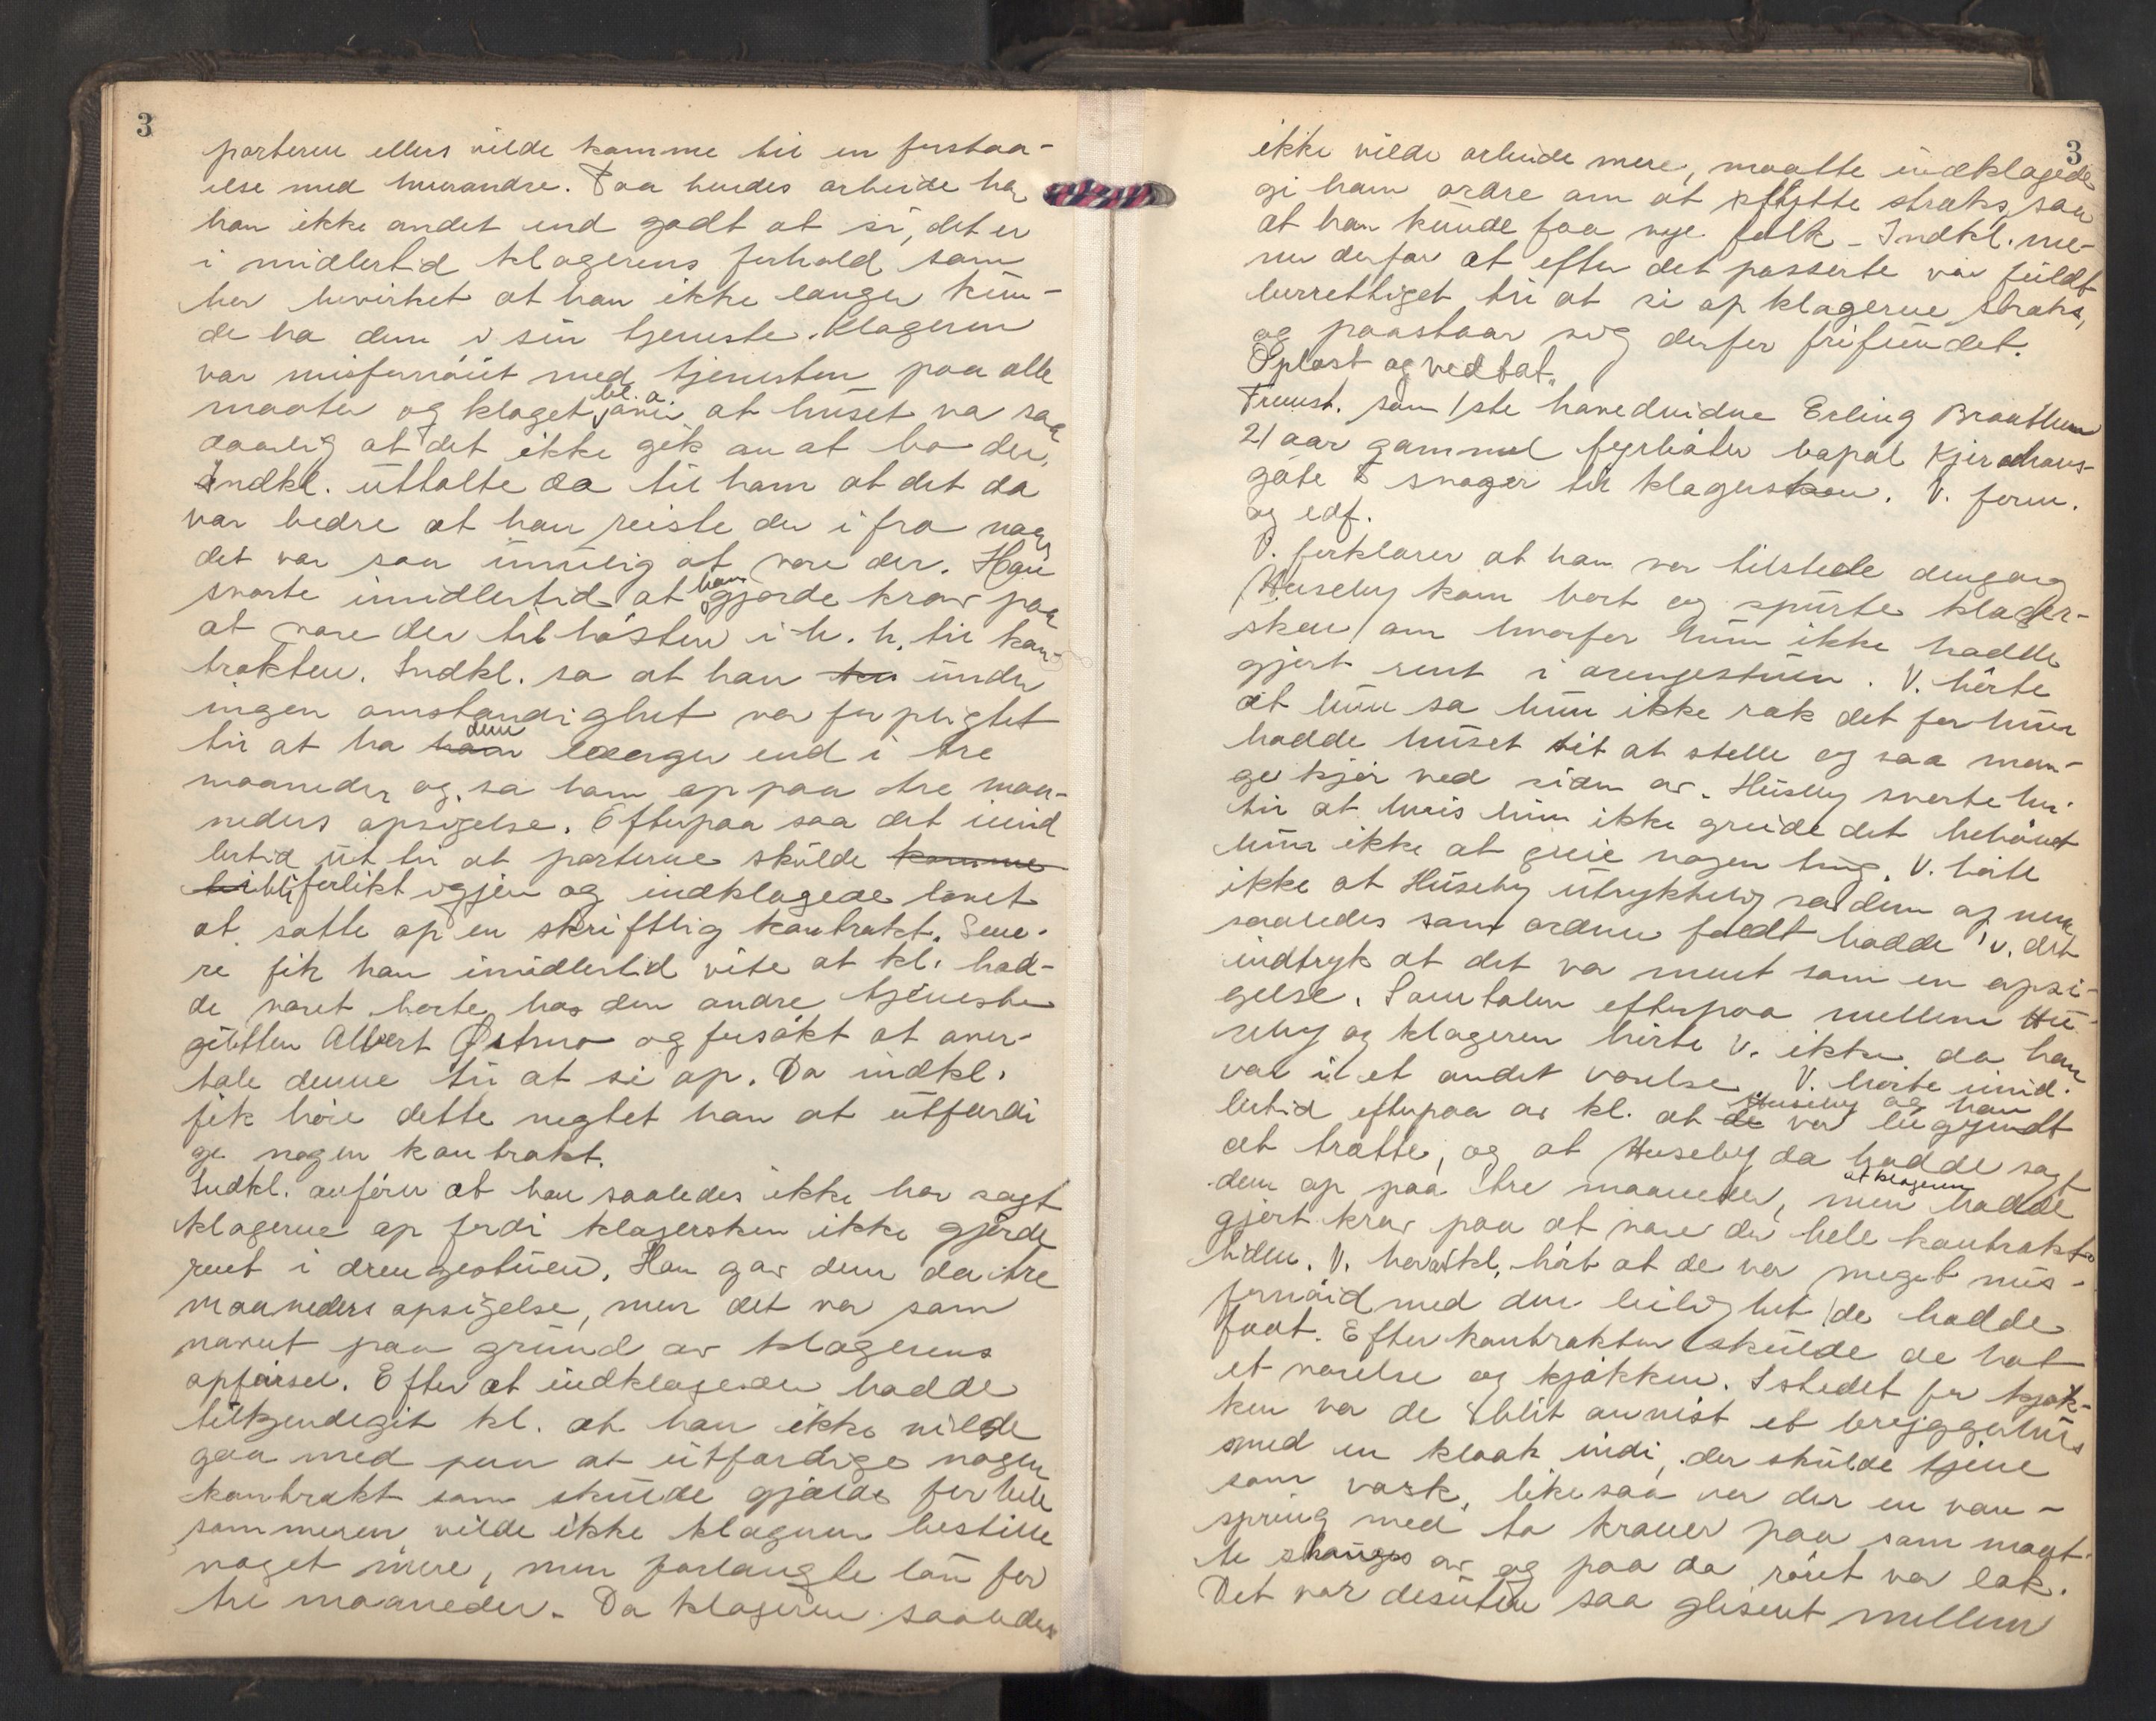 3
parterne ellers vilde komme til en forstaa-
else med hverandre. Paa hendes arbeide har
han ikke andet end godt at si, det er
i midlertid klagerens forhold som
har bevirket at han ikke længer kun-
de ha dem i sin tjeneste. Klageren
var misfornöiet med tjenesten paa alle
maater og klaget bl. a. over at huset va saa
daarlig at det ikke gik an at bo der.
Indkl. uttalte da til ham at det da
var bedre at han reiste der ifra naar
det var saa umulig at være der. Han
svarte imidlertid at han gjorde krav paa
at være der til hösten i h. h. til kon-
trakten. Indkl. sa at han under
ingen omstændighet var forpligtet
til at ha ham dem længer end i tre
maaneder og sa ham op paa tre maa-
neders opsigelse. Efterpaa saa det imid
lertid ut til at parterne skulde komme
til bli forlikt igjen og indklagede lovet
at sætte op en skriftlig kontrakt. Sene-
re fik han imidlertid vite at kl. had-
de været borte hos den andre tjeneste
gutten Albert Østmo og forsökt at over-
tale denne til at si op. Da indkl.
fik höre dette negtet han at utfærdi
ge nogen kontrakt.
Indkl. anförer at han saaledes ikke har sagt
klagerne op fordi klagersken ikke gjorde
rent i drengestuen. Han gav dem da tre
maaneders opsigelse, men det var som
nævnt paa grund av klagerens
opförsel. Efter at indklageden hadde
tilkjendegit kl. at han ikke vilde
gaa med paa at utfærdige nogen
kontrakt som skulde gjælde for hele
sommeren vilde ikke klageren bestille
noget mere, men forlangte lön for
tre maaneder. Da klageren saaledes
3
ikke vilde arbeide mere, maatte indklagede
gi ham ordre om at flytte straks, saa
at han kunde faa nye folk. Indkl. me-
ner derfor at efter det passerte var fuldt
berettiget til at si op klagerne straks,
og paastaar sig derfor frifundet.
Oplæst og vedtat.
Fremst. som 1ste hovedvidne Erling Braathen
21 aar gammel fyrböter bopæl Kjerschous-
gate 8 svoger til klagersken. V. form.
og edf.
V. forklarer at han var tilstede dengang
Huseby kom bort og spurte klager-
sken om hvorfor hun ikke hadde
gjort rent i drengestuen. V. hörte
at hun sa hun ikke rak det for hun
hadde huset sit at stelle og saa man-
ge kjör ved siden av. Huseby svarte her-
til at hvis hun ikke greide det behövet
hun ikke at greie nogen ting. V. hörte
ikke at Huseby utrykkelig sa dem op men
saaledes som ordene faldt hadde v. det
indtryk at det var ment som en opsi-
gelse. Samtalen efterpaa mellem Hu-
seby og klageren hörte v. ikke da han
var i et andet værelse. V. hörte imid-
lertid efterpaa av kl. at de Huseby og han var begyndt
at trætte, og at Huseby da hadde sagt
dem op paa tre maaneder, men at klageren hadde
gjort krav paa at være der hele kontrakts
tiden. V. har av kl. hört at de var meget mis-
fornöid med den leilighet de hadde
faat. Efter kontrakten skulde de hat
et værelse og kjökken. Istedet for kjök-
ken var de blit anvist et bryggerhus
med en kloak indi, der skulde tjene
som vask, likesaa var der en van-
spring med to kraner paa som maat-
te stænges av og paa da röret var læk.
Det var desuten saa glisent mellem